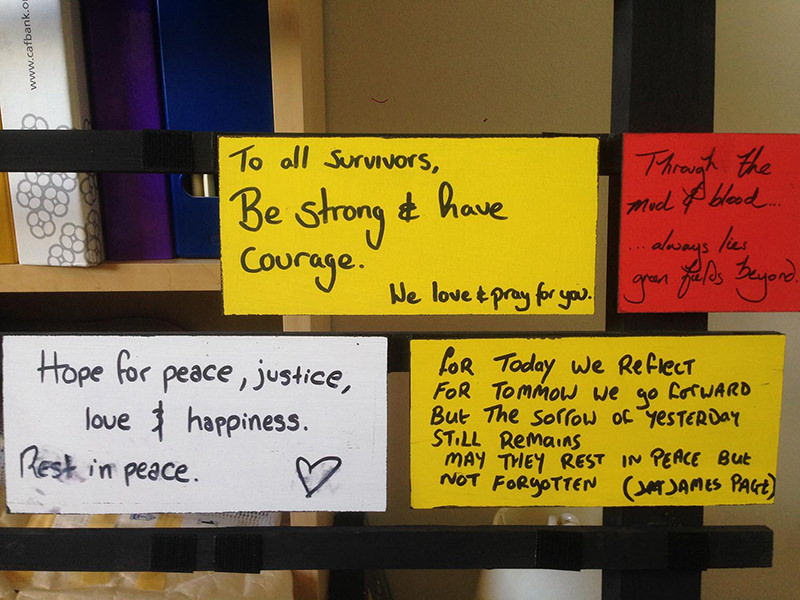 www.cafbank.or
To all survivors,
Be strong & have
courage.
We love & pray for you.
Through the
mud & blood...
...always lies
green fields beyond.
Hope for peace, justice,
love & happiness.
Rest in peace.
FOR Today we Reflect
FOR TOMMOW we go FORWARD
BUT THE SORROW OF YESTERDAY
STILL Remains
MAY THEY REST IN PEACE BUT
NOT FORGOTTEN (JAMES PAGE)